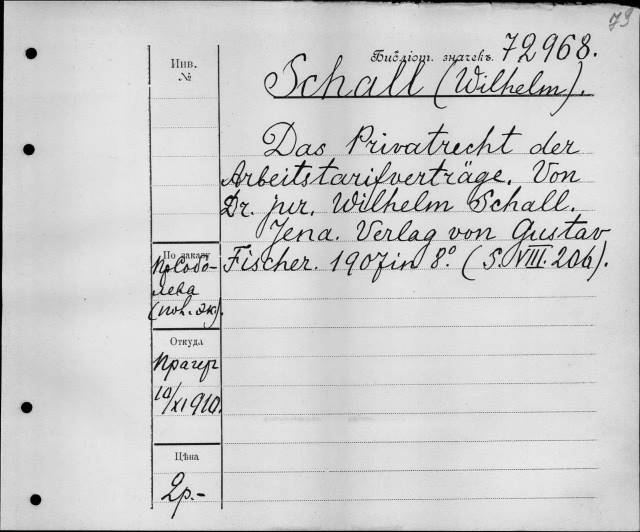 79
Инв.
№
Библіот. значекъ. 72968.
Schall (Wilhelm).
Das Privatrecht der
Arbeitstarifverträge. Von
Dr. jur. Wilhelm Schall.
Jena. Verlag von Gustav
Fischer. 1907 in 8° (S. VIII. 206).
По заказу
Собо-
лева
Откуда
Прагер
10/XI 1910.
Цѣна
2р.-